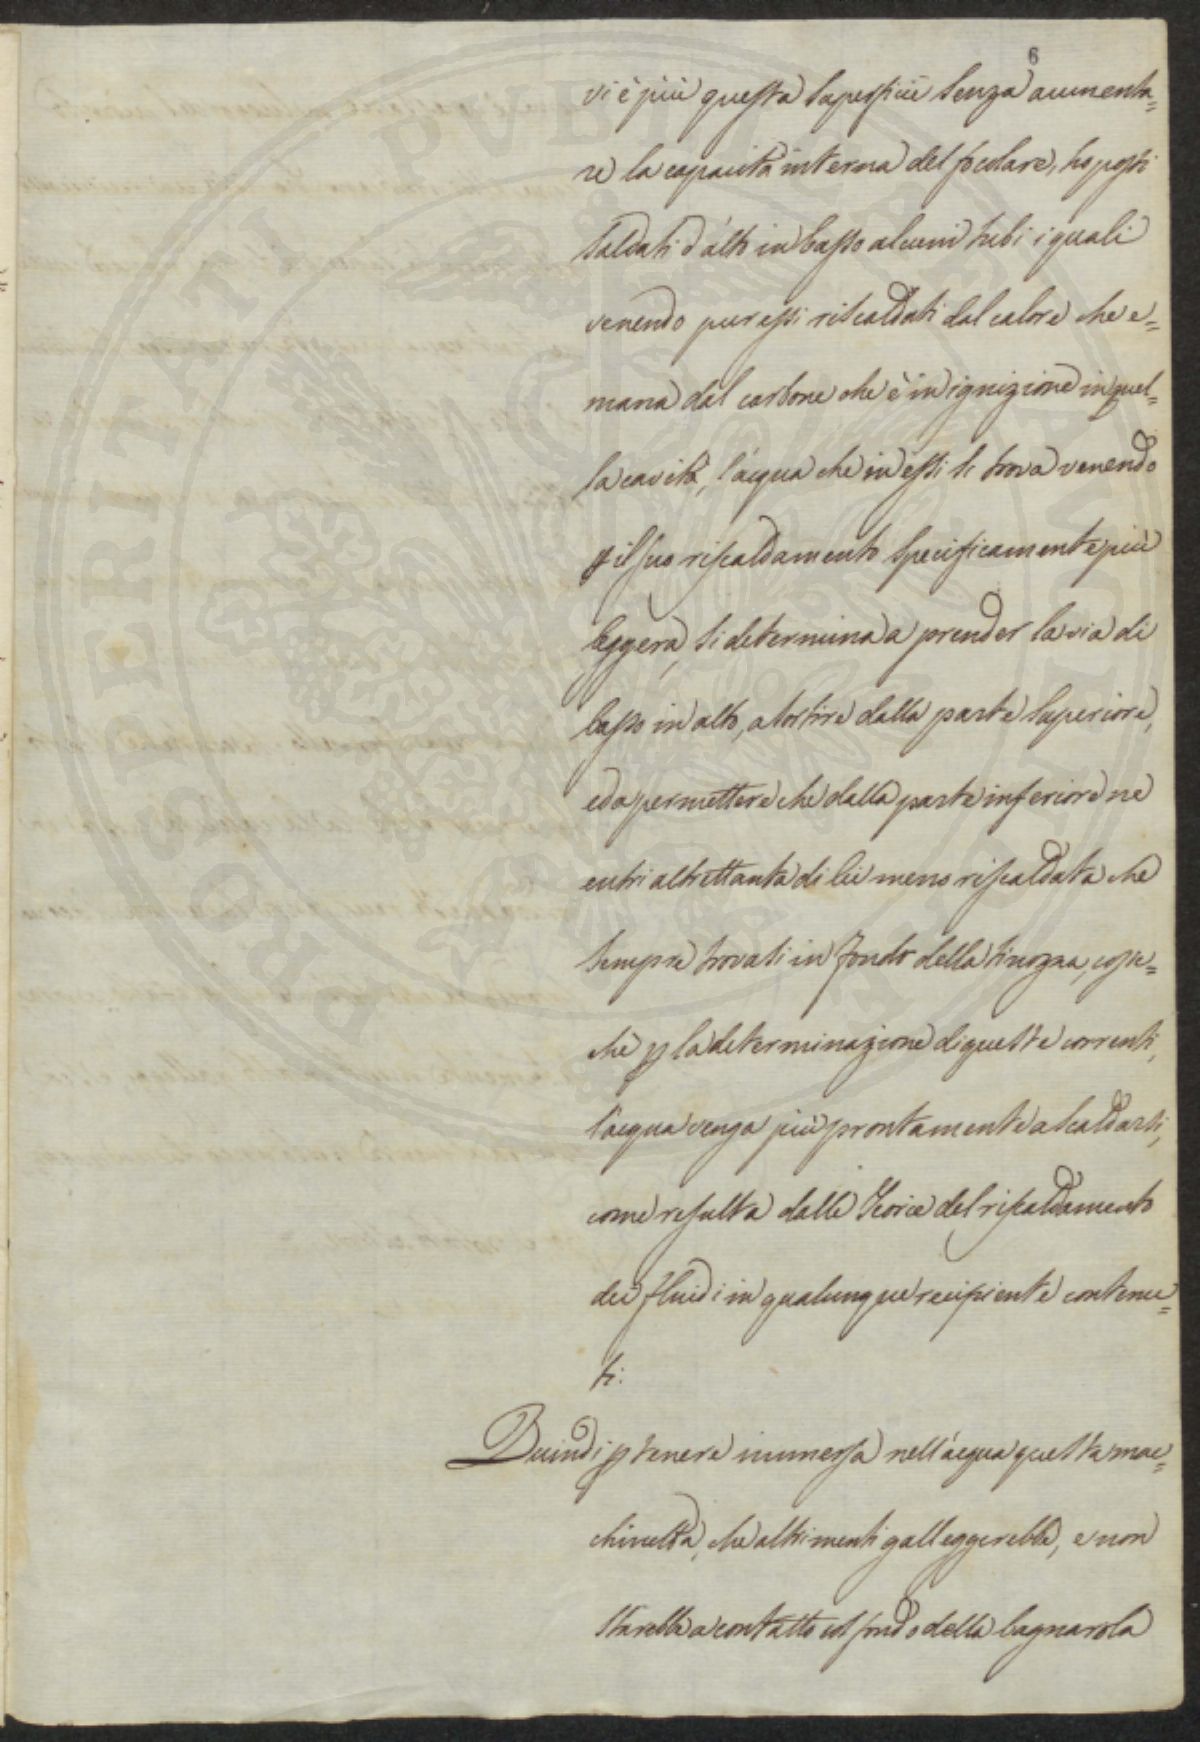 6
vi è più questa superficie senza aumenta=
re la capacità interna del focolare, ho posti
saldati d'alto in basso alcuni tubi i quali
venendo pur essi riscaldati dal calore che e=
mana dal carbone che è in ignizione in quel=
la cavità, l'acqua che in essi si trova venendo
p il suo riscaldamento specificamente più
leggera, si determina a prender la via di
basso in alto, a sortire dalla parte superiore,
ed a permettere che dalla parte inferiore ne
entri altrettanta di lei meno riscaldata che
sempre trovasi in fondo della tinozza, cosic=
chè p la determinazione di queste correnti,
l'acqua venga più prontamente a scaldarsi,
come resulta dalle Teorie del riscaldamento
dei fluidi in qualunque recipiente contenu=
ti.
Quindi p tenere immersa nell'acqua questa mac=
chinetta, che altrimenti galleggerebbe, e non
starebbe a contatto col fondo della bagnarola
PROSPERITATI PUBLICAE